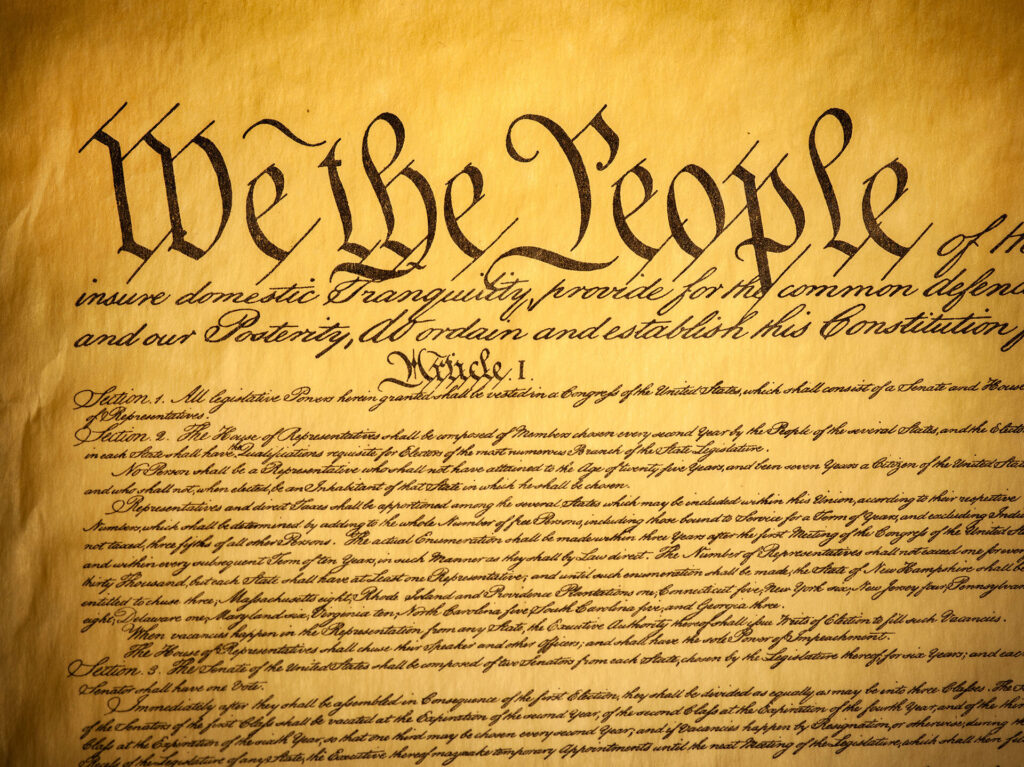 We the People of th
insure domestic Tranquility, provide for the common defenc
and our Posterity, do ordain and establish this Constitution f
Article. I.
Section. 1. All legislative Powers herein granted shall be vested in a Congress of the United States, which shall consist of a Senate and House
of Representatives.
Section. 2. The House of Representatives shall be composed of Members chosen every second Year by the People of the several States, and the Elect
in each State shall have the Qualifications requisite for Electors of the most numerous Branch of the State Legislature.
No Person shall be a Representative who shall not have attained to the Age of twenty five Years, and been seven Years a Citizen of the United Stat
and who shall not, when elected, be an Inhabitant of that State in which he shall be chosen.
Representatives and direct Taxes shall be apportioned among the several States which may be included within this Union, according to their respective
Numbers, which shall be determined by adding to the whole Number of free Persons, including those bound to Service for a Term of Years, and excluding Indian
not taxed, three fifths of all other Persons. The actual Enumeration shall be made within three Years after the first Meeting of the Congress of the United Sta
and within every subsequent Term of ten Years, in such Manner as they shall by Law direct. The Number of Representatives shall not exceed one for ever
thirty Thousand, but each State shall have at Least one Representative; and until such enumeration shall be made, the State of New Hampshire shall be
entitled to chuse three, Massachusetts eight, Rhode Island and Providence Plantations one, Connecticut five, New York six, New Jersey four, Pennsylvan
eight, Delaware one, Maryland six, Virginia ten, North Carolina five, South Carolina five, and Georgia three.
When vacancies happen in the Representation from any State, the Executive Authority thereof shall issue Writs of Election to fill such Vacancies.
The House of Representatives shall chuse their Speaker and other Officers; and shall have the sole Power of Impeachment.
Section. 3. The Senate of the United States shall be composed of two Senators from each State, chosen by the Legislature thereof, for six Years; and each
Senator shall have one Vote.
Immediately after they shall be assembled in Consequence of the first Election, they shall be divided as equally as may be into three Classes. The S
of the Senators of the first Class shall be vacated at the Expiration of the second Year, of the second Class at the Expiration of the fourth Year, and of the third
Class at the Expiration of the sixth Year, so that one third may be chosen every second Year; and if Vacancies happen by Resignation, or otherwise, during the
Recess of the Legislature of any State, the Executive thereof may make temporary Appointments until the next Meeting of the Legislature, which shall then fill